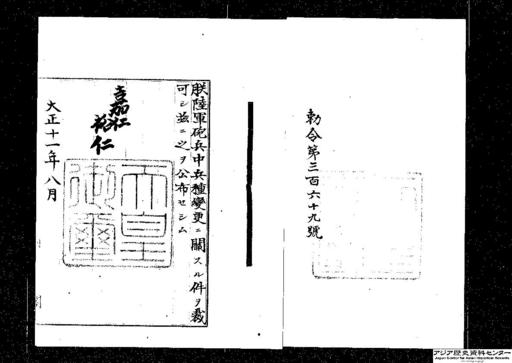 勅令第三百六十九號
朕陸軍砲兵中兵種變更ニ關スル件ヲ裁
可シ茲ニ之ヲ公布セシム
嘉仁
裕仁
天皇御璽
大正十一年八月
アジア歴史資料センター
Japan Center for Asian Historical Records